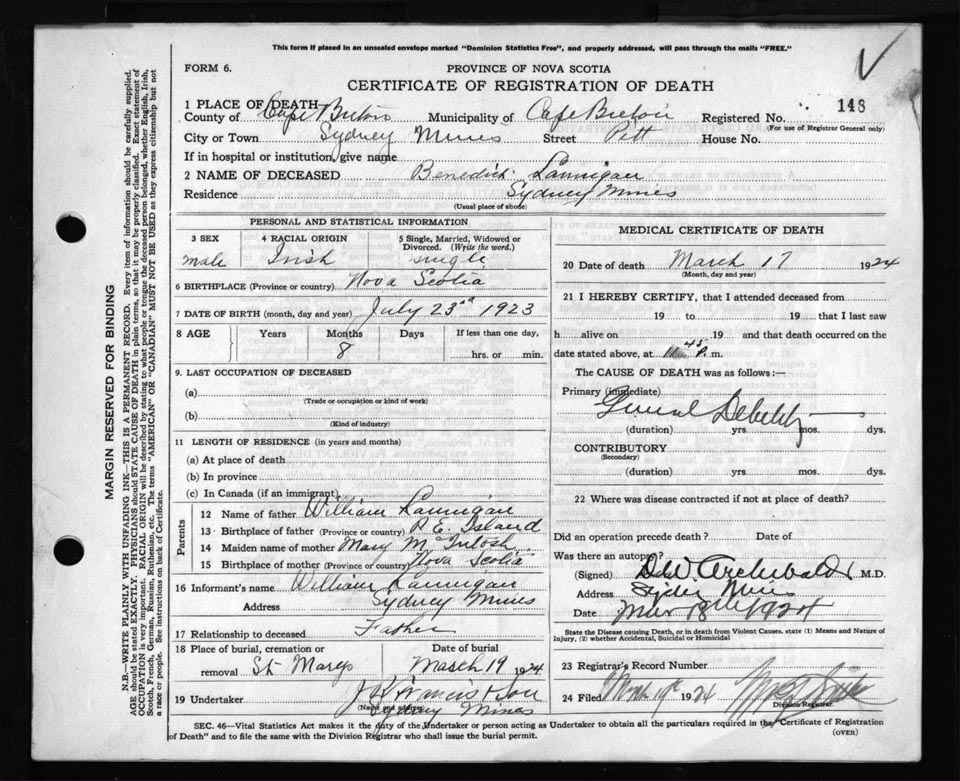 This form if placed in an unsealed envelope marked "Dominion Statistics Free", and properly addressed, will pass through the mails "FREE."
FORM 6.
PROVINCE OF NOVA SCOTIA
CERTIFICATE OF REGISTRATION OF DEATH
1 PLACE OF DEATH
County of Cape Breton Municipality of Cape Breton Registered No. 148
(For use of Registrar General only)
City or Town Sydney Mines Street Pitt House No.
If in hospital or institution, give name
2 NAME OF DECEASED Benedict Lannigan
Residence Sydney Mines
(Usual place of abode)
PERSONAL AND STATISTICAL INFORMATION
3 SEX male
4 RACIAL ORIGIN Irish
5 Single, Married, Widowed or Divorced. (Write the word.) single
6 BIRTHPLACE (Province or country) Nova Scotia
7 DATE OF BIRTH (month, day and year) July 23rd 1923
8 AGE Years Months Days If less than one day,
8 hrs. or min.
9. LAST OCCUPATION OF DECEASED
(a)
(Trade or occupation or kind of work)
(b)
(Kind of industry)
11 LENGTH OF RESIDENCE (in years and months)
(a) At place of death
(b) In province
(c) In Canada (if an immigrant)
Parents
12 Name of father William Lannigan
13 Birthplace of father (Province or country) P. E. Island
14 Maiden name of mother Mary McIntosh
15 Birthplace of mother (Province or country) Nova Scotia
16 Informant's name William Lannigan
Address Sydney Mines
17 Relationship to deceased Father
18 Place of burial, cremation or removal St Marys
Date of burial March 19 1924
19 Undertaker J Francis & Son
(Name and address) Sydney Mines
MEDICAL CERTIFICATE OF DEATH
20 Date of death March 17 1924
(Month, day and year)
21 I HEREBY CERTIFY, that I attended deceased from
19 to 19 that I last saw
h alive on 19 and that death occurred on
date stated above, at 11.45 P. m.
The CAUSE OF DEATH was as follows:—
Primary (immediate)
General Debility
(duration) yrs. mos. dys.
CONTRIBUTORY
(Secondary)
(duration) yrs. mos. dys.
22 Where was disease contracted if not at place of death?
Did an operation precede death? Date of
Was there an autopsy?
(Signed) D.W. Archibald M.D.
Address Sydney Mines
Date Mar 18th 1924
State the Disease causing Death, or in death from Violent Causes, state (1) Means and Nature of
Injury, (2) whether Accidental, Suicidal or Homicidal
23 Registrar's Record Number
24 Filed Mar 19th 1924
Division Registrar.
SEC. 46—Vital Statistics Act makes it the duty of the Undertaker or person acting as Undertaker to obtain all the particulars required in the "Certificate of Registration
of Death" and to file the same with the Division Registrar who shall issue the burial permit.
(OVER)
MARGIN RESERVED FOR BINDING
N.B.—WRITE PLAINLY WITH UNFADING INK—THIS IS A PERMANENT RECORD. Every item of information should be carefully supplied.
AGE should be stated EXACTLY. PHYSICIANS should STATE CAUSE OF DEATH in plain terms, so that it may be properly classified. Exact statement of
OCCUPATION is very important. RACIAL ORIGIN will be described by stating to what people or tongue the deceased person belonged, whether English, Irish,
Scotch, French, German, Russian, Ruthenian, etc. The terms "AMERICAN" OR "CANADIAN" MUST NOT BE USED as they express citizenship but not
a race or people. See instructions on back of Certificate.